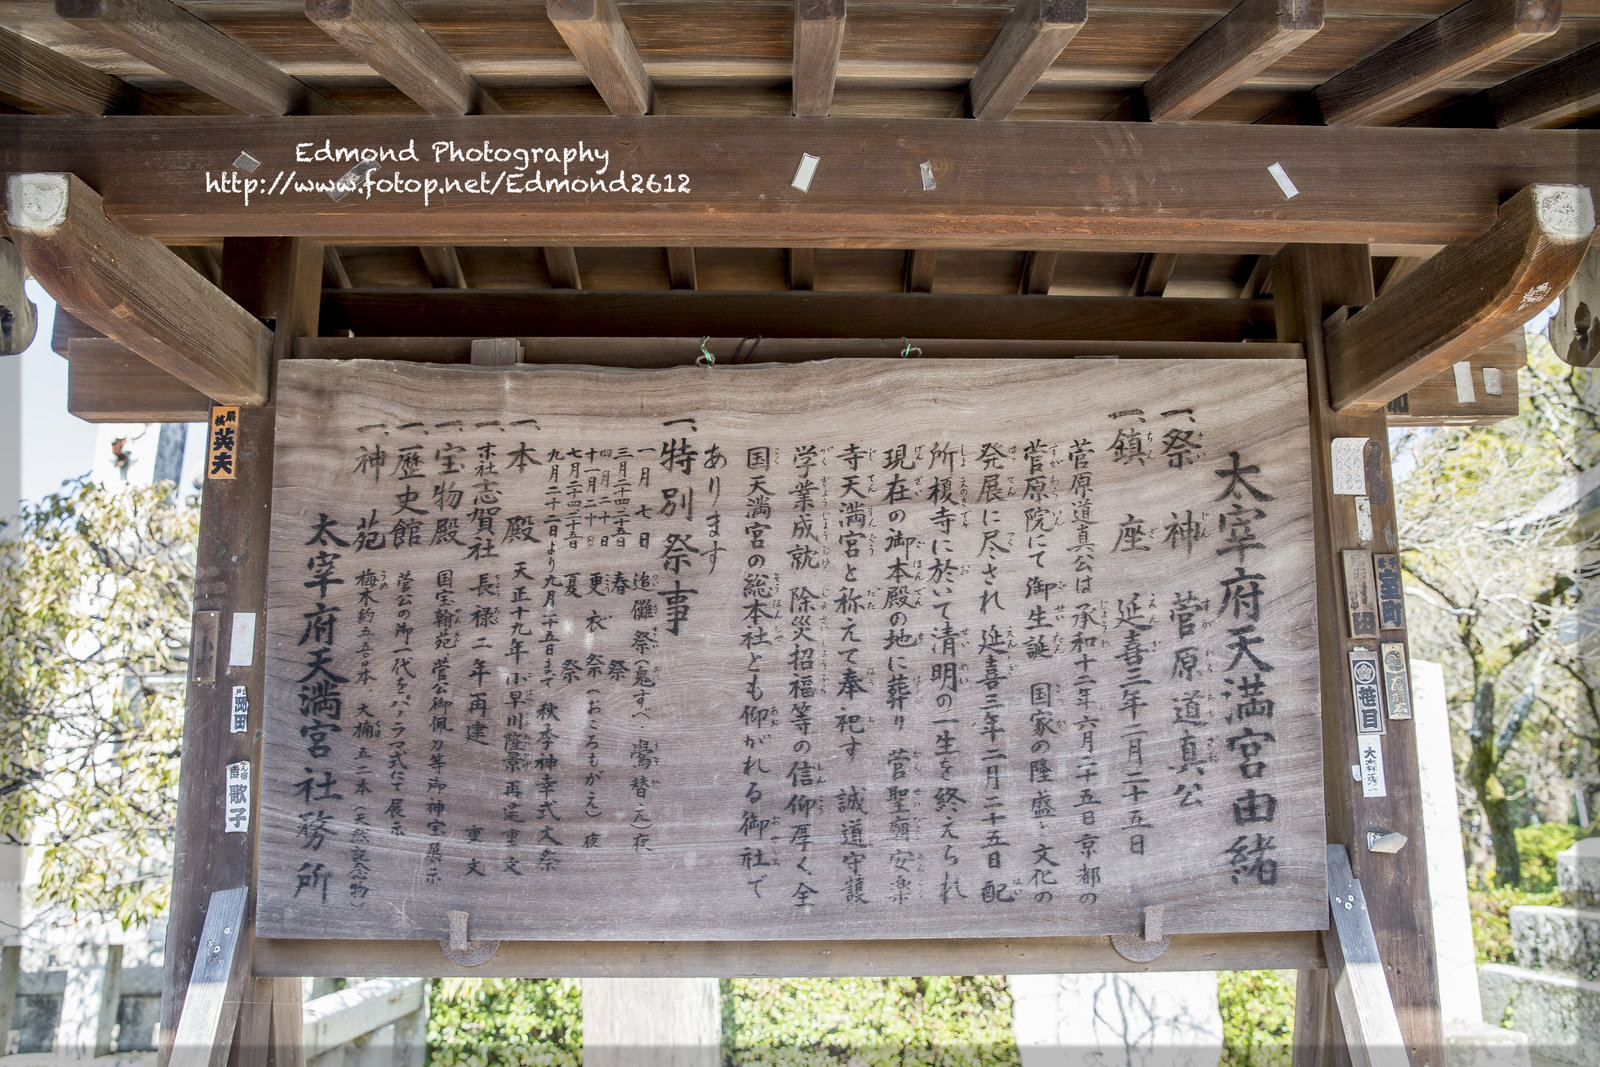 Edmond Photography
http://www.fotop.net/Edmond2612
太宰府天満宮由緒
一、祭神 菅原道真公
一、鎮座 延喜三年二月二十五日
菅原道真公は承和十二年六月二十五日京都の
菅原院にて御生誕 国家の隆盛と文化の
発展に尽され 延喜三年二月二十五日 配
所榎寺に於いて清明の一生を終えられ
現在の御本殿の地に葬り 菅聖廟安楽
寺天満宮と称えて奉祀す 誠道守護
学業成就 除災招福等の信仰厚く全
国天満宮の総本社とも仰がれる御社で
あります
一、特別祭事
一月七日 追儺祭(鬼すべ 鷽替え)夜
三月二十四二十五日 春祭
四月二十日 十一月二十日 更衣祭(おころもがえ)夜
七月二十四二十五日 夏祭
九月二十二日より九月二十五日まで 秋季神幸式大祭
一、本殿 天正十九年小早川隆景再建 重文
一、末社志賀社 長禄二年再建 重文
一、宝物殿 国宝翰苑 菅公御佩刀等御神宝展示
一、歴史館 菅公の御一代をパノラマ式にて展示
一、神苑 梅木約五五〇本、大楠五二本(天然記念物)
太宰府天満宮社務所
英夫
岡田
歌子
室町
巻目